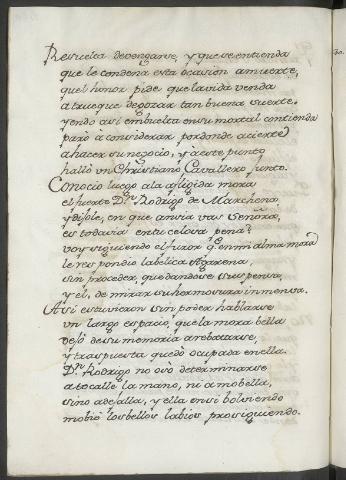 Resuelta devengarse, y que se entienda
que le condena esta ocasion amuerte,
quel honor pide que la vida venda
atrueque degozar tan buena suerte.
yendo asi embuelta ensu mortal contienda
paró à considerar pordonde acierte
ahacer su negocio, y à este punto
halló vn Christiano Cavallero junto.
Conocio luego ala afligida mora
el fuerte Dn. Rodrigo de Marchena,
y dijole, en que ansia vas Señora,
es todavia entu celosa pena?
voy siguiendo el furor q. enmi alma mora
le respondio labelica Agarena,
sin proceder, quedandose suspensa,
y el, de mirar su hermosura inmensa.
Asi estuvieron sin poder hablarse
vn largo espacio, que la mora bella
dejó desu memoria arrebatarse,
y traspuesta quedó ocupada enella.
Dn. Rodrigo no osò determinarse
atocalle la mano, ni a mobella,
sino adejalla, y ella ensi bolviendo
mobió los bellos labios prosiguiendo.